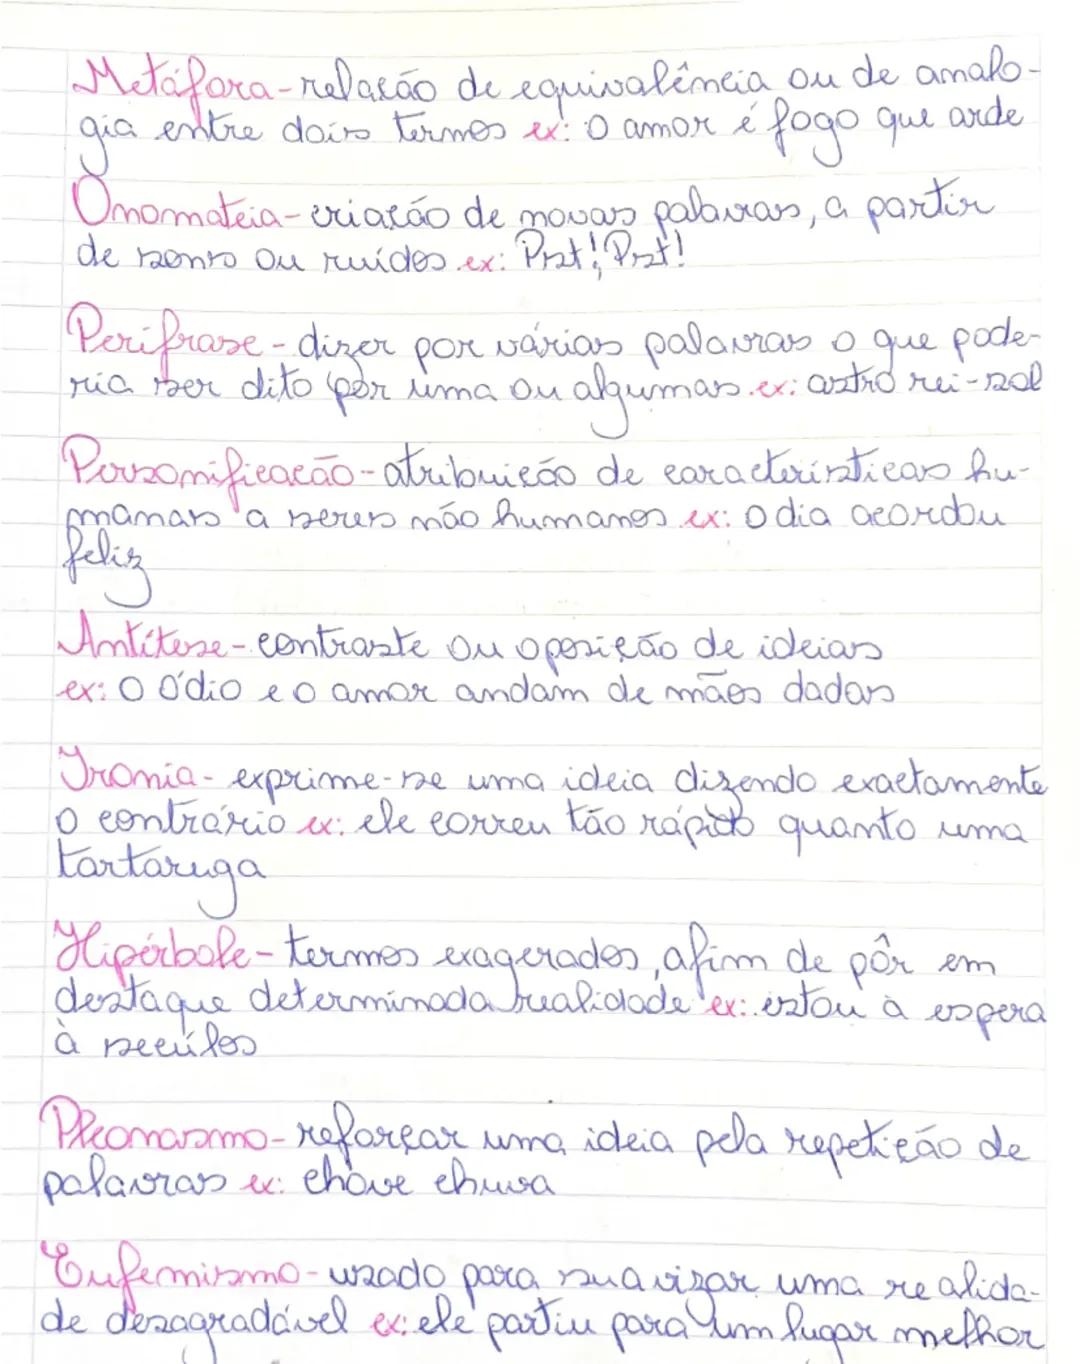 Metáfora-relação de equivalência ou de analo-
gia entre dois termos ex: O amor é fogo que arde
Onomateia-criação de novas palavras, a partir
de sons ou ruídos ex: Pzt! Pzt!
Perífrase-dizer por várias palavras o que pode-
ria ser dito por uma ou algumas. ex: astro rei-sol
Personificação-atribuição de características hu-
manas a seres não humanos ex: O dia acordou
feliz
Antítese-contraste ou oposição de ideias
ex: O ódio e o amor andam de mãos dadas
Ironia-exprime-se uma ideia dizendo exactamente
o contrário ex: ele correu tão rápido quanto uma
tartaruga
Hipérbole-termos exagerados, afim de pôr em
destaque determinada realidade ex: estou à espera
à séculos
Pleonasmo-reforçar uma ideia pela repetição de
palavras ex: chove chuva
Eufemismo-usado para suavizar uma realida-
de desagradável ex: ele partiu para um lugar melhor